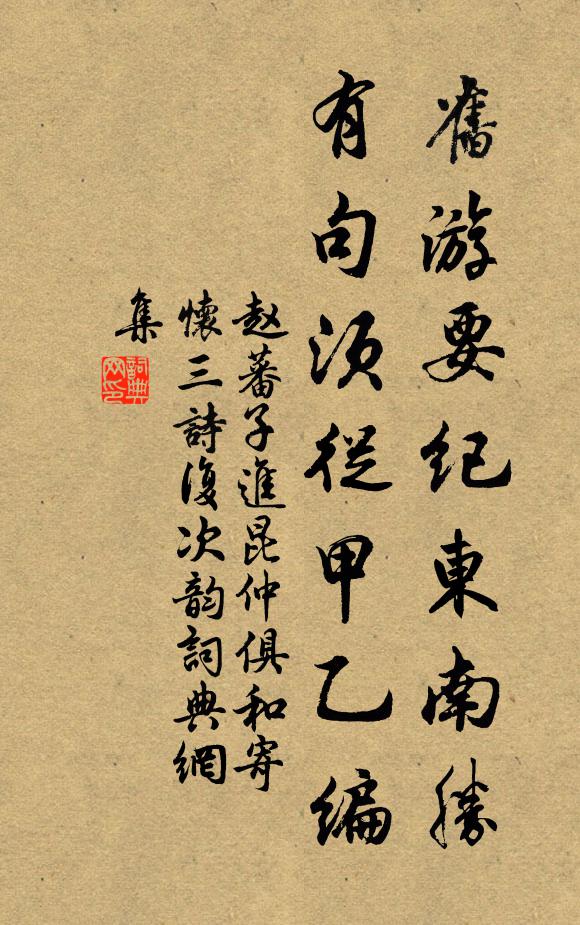 舊游要纪東南勝
有句须從甲乙編
赵蕃子進昆仲俱和寄
懷三詩復次韵詞典網
集
詞典
网印